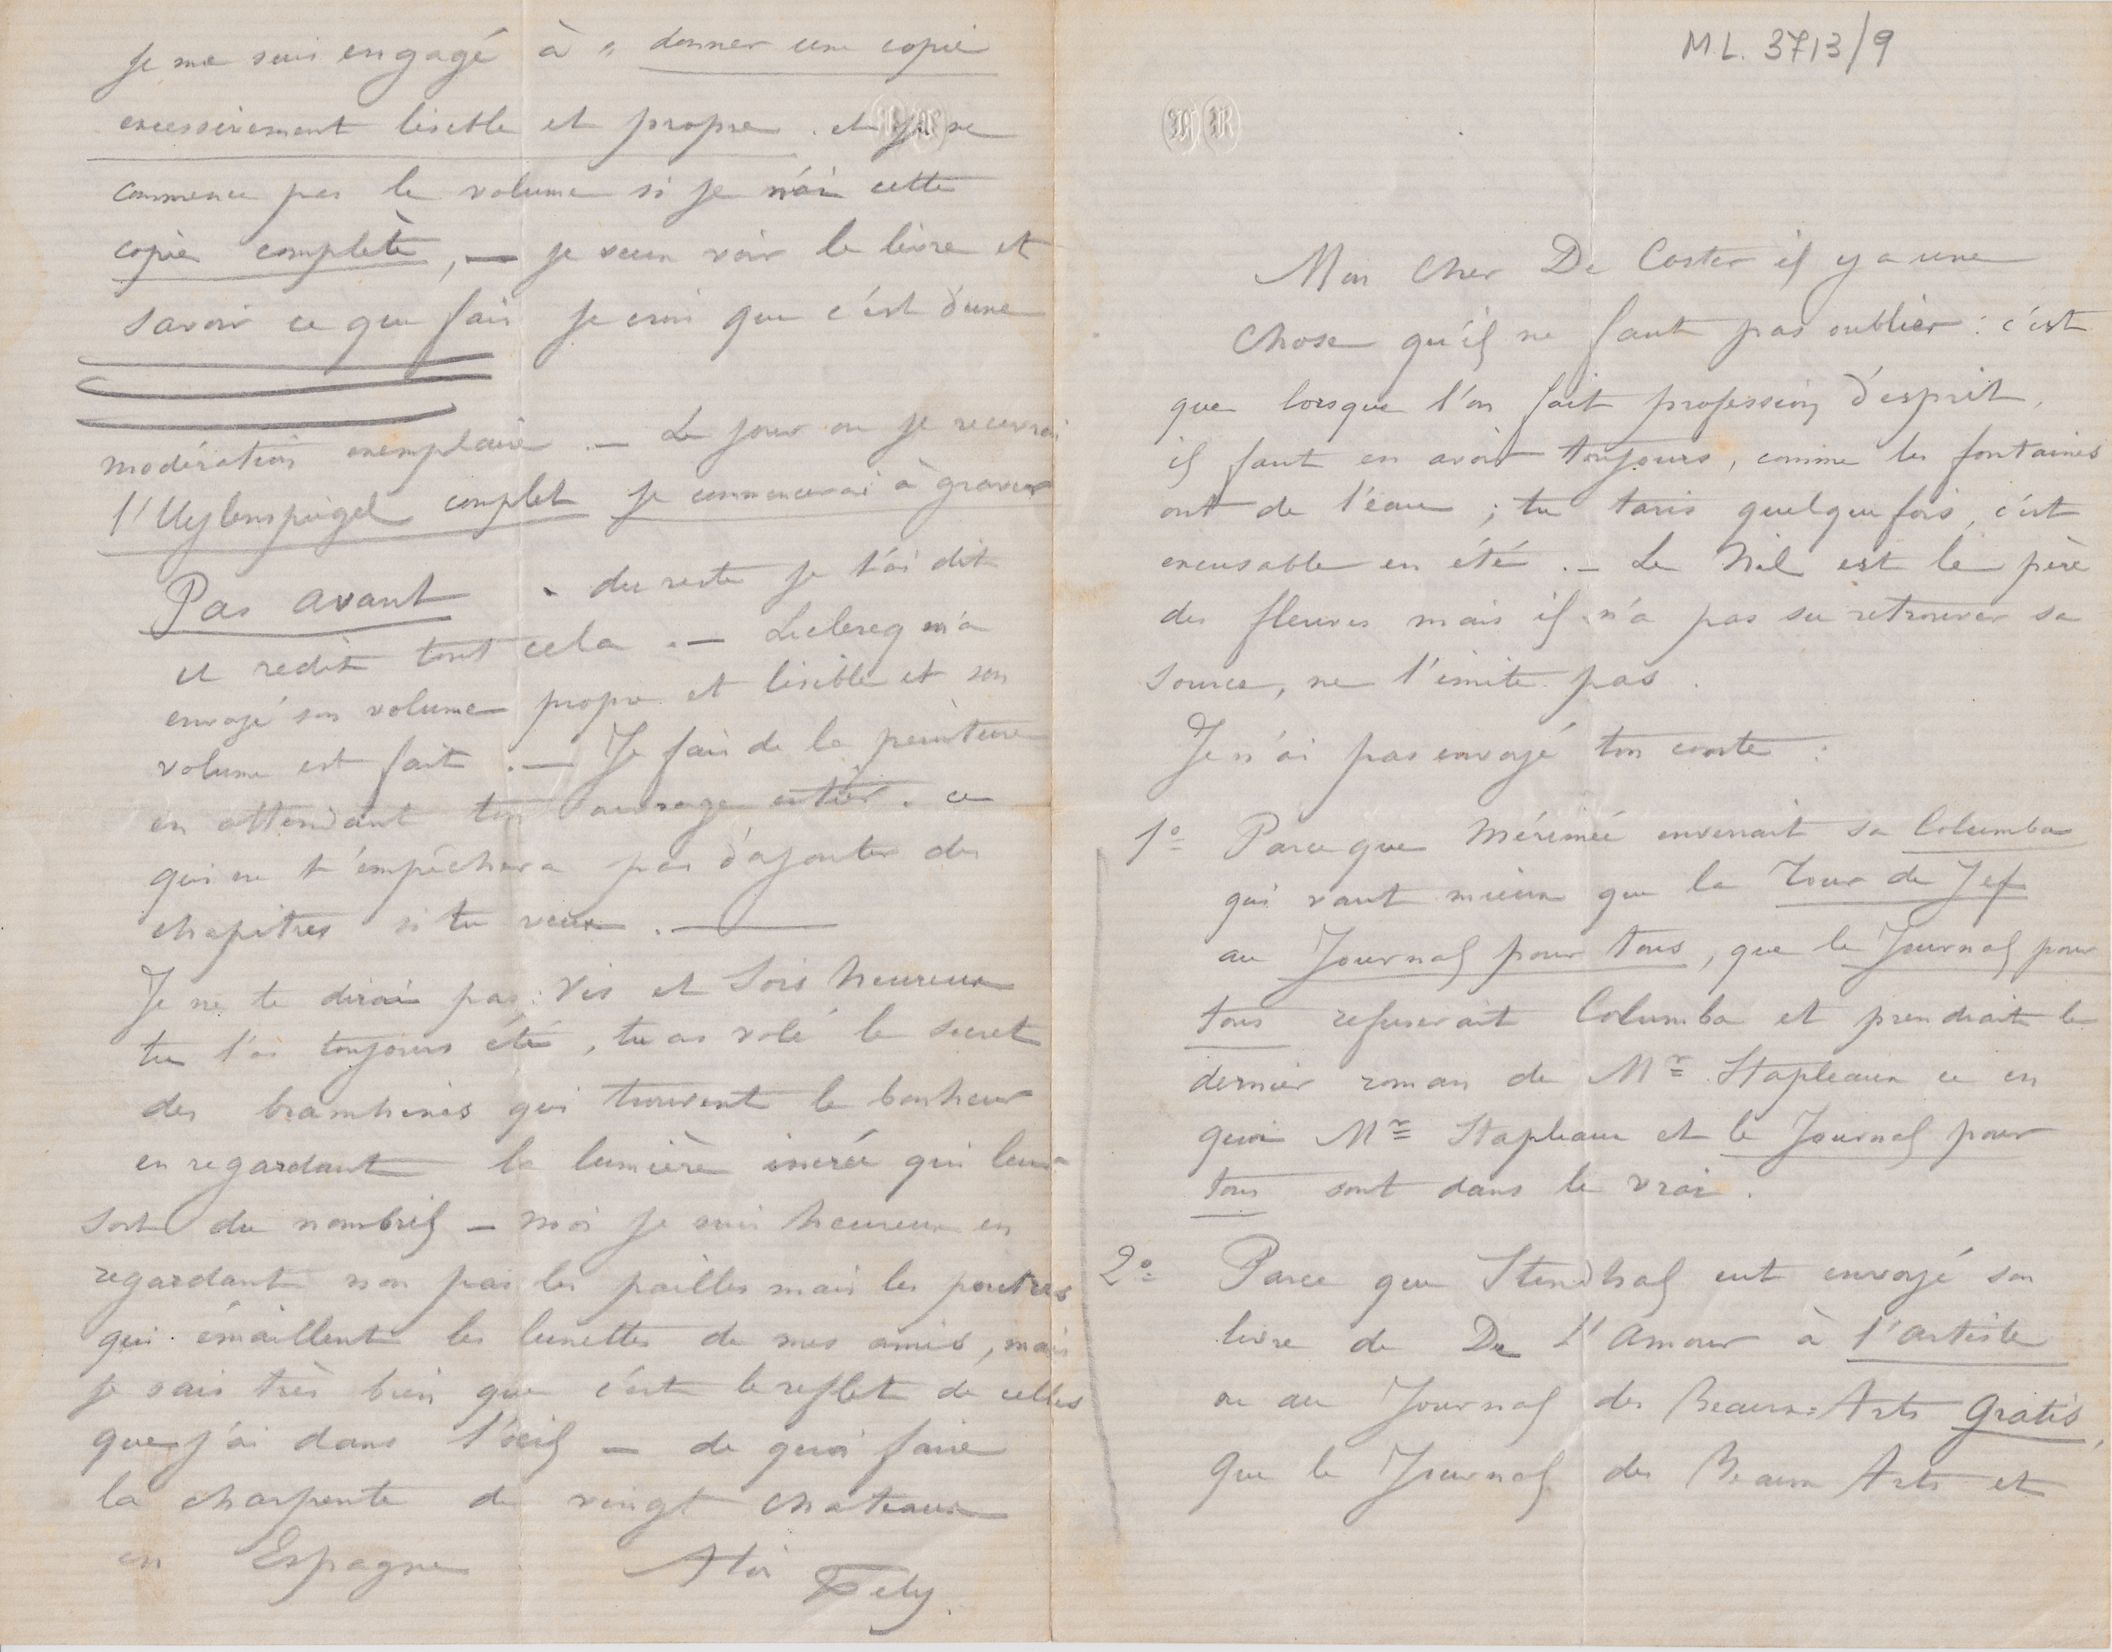 M.L. 3713/9
Mon Cher De Coster il y a une
chose qu'il ne faut pas oublier : c'est
que lorsque l'on fait profession d'esprit,
il faut en avoir toujours, comme les fontaines
ont de l'eau ; tu taris quelquefois, c'est
excusable en été . – Le Nil est le père
des fleuves mais il n'a pas su retrouver sa
source, ne l'imite pas .
Je n'ai pas envoyé ton conte :
1º Parce que Mérimée enverrait sa Columba
qui vaut mieux que la Tour de Jef
au Journal pour tous, que le Journal pour
tous refuserait Columba et prendrait le
dernier roman de Mr Stapleaux ce en
quoi Mr Stapleaux et le Journal pour
tous sont dans le vrai .
2º Parce que Stendhal eut envoyé son
livre de De L'Amour à l'Artiste
ou au Journal des Beaux-Arts Gratis,
que le Journal des Beaux Arts et
Je me suis engagé à " donner une copie
excessivement lisible et propre . et je ne
commence pas le volume si je n'ai cette
copie complète, — je veux voir le livre et
savoir ce que fais je crois que c'est d'une
modération exemplaire . — Le jour ou je recevrai
l'Uylenspiegel complet je commencerai à graver
Pas avant . du reste je t'ai dit
et redit tout cela . — Leclercq m'a
envoyé son volume propre et lisible et son
volume est fait . — Je fais de la peinture
en attendant ton ouvrage entier . ce
qui ne t'empêchera pas d'ajouter des
chapitres si tu veux . —
Je ne te dirai pas : Vis et Sois heureux
tu l'as toujours été, tu as volé le secret
des bramhines qui trouvent le bonheur
en regardant la lumière incréé qui leur
sort du nombril – moi je suis heureux en
regardant non pas les pailles mais les poutres
qui émaillent les lunettes de mes amis, mais
je sais très bien que c'est le reflet de celles
que j'ai dans l'œil – de quoi faire
la charpente de vingt chateaux
en Espagne
A toi Fély.